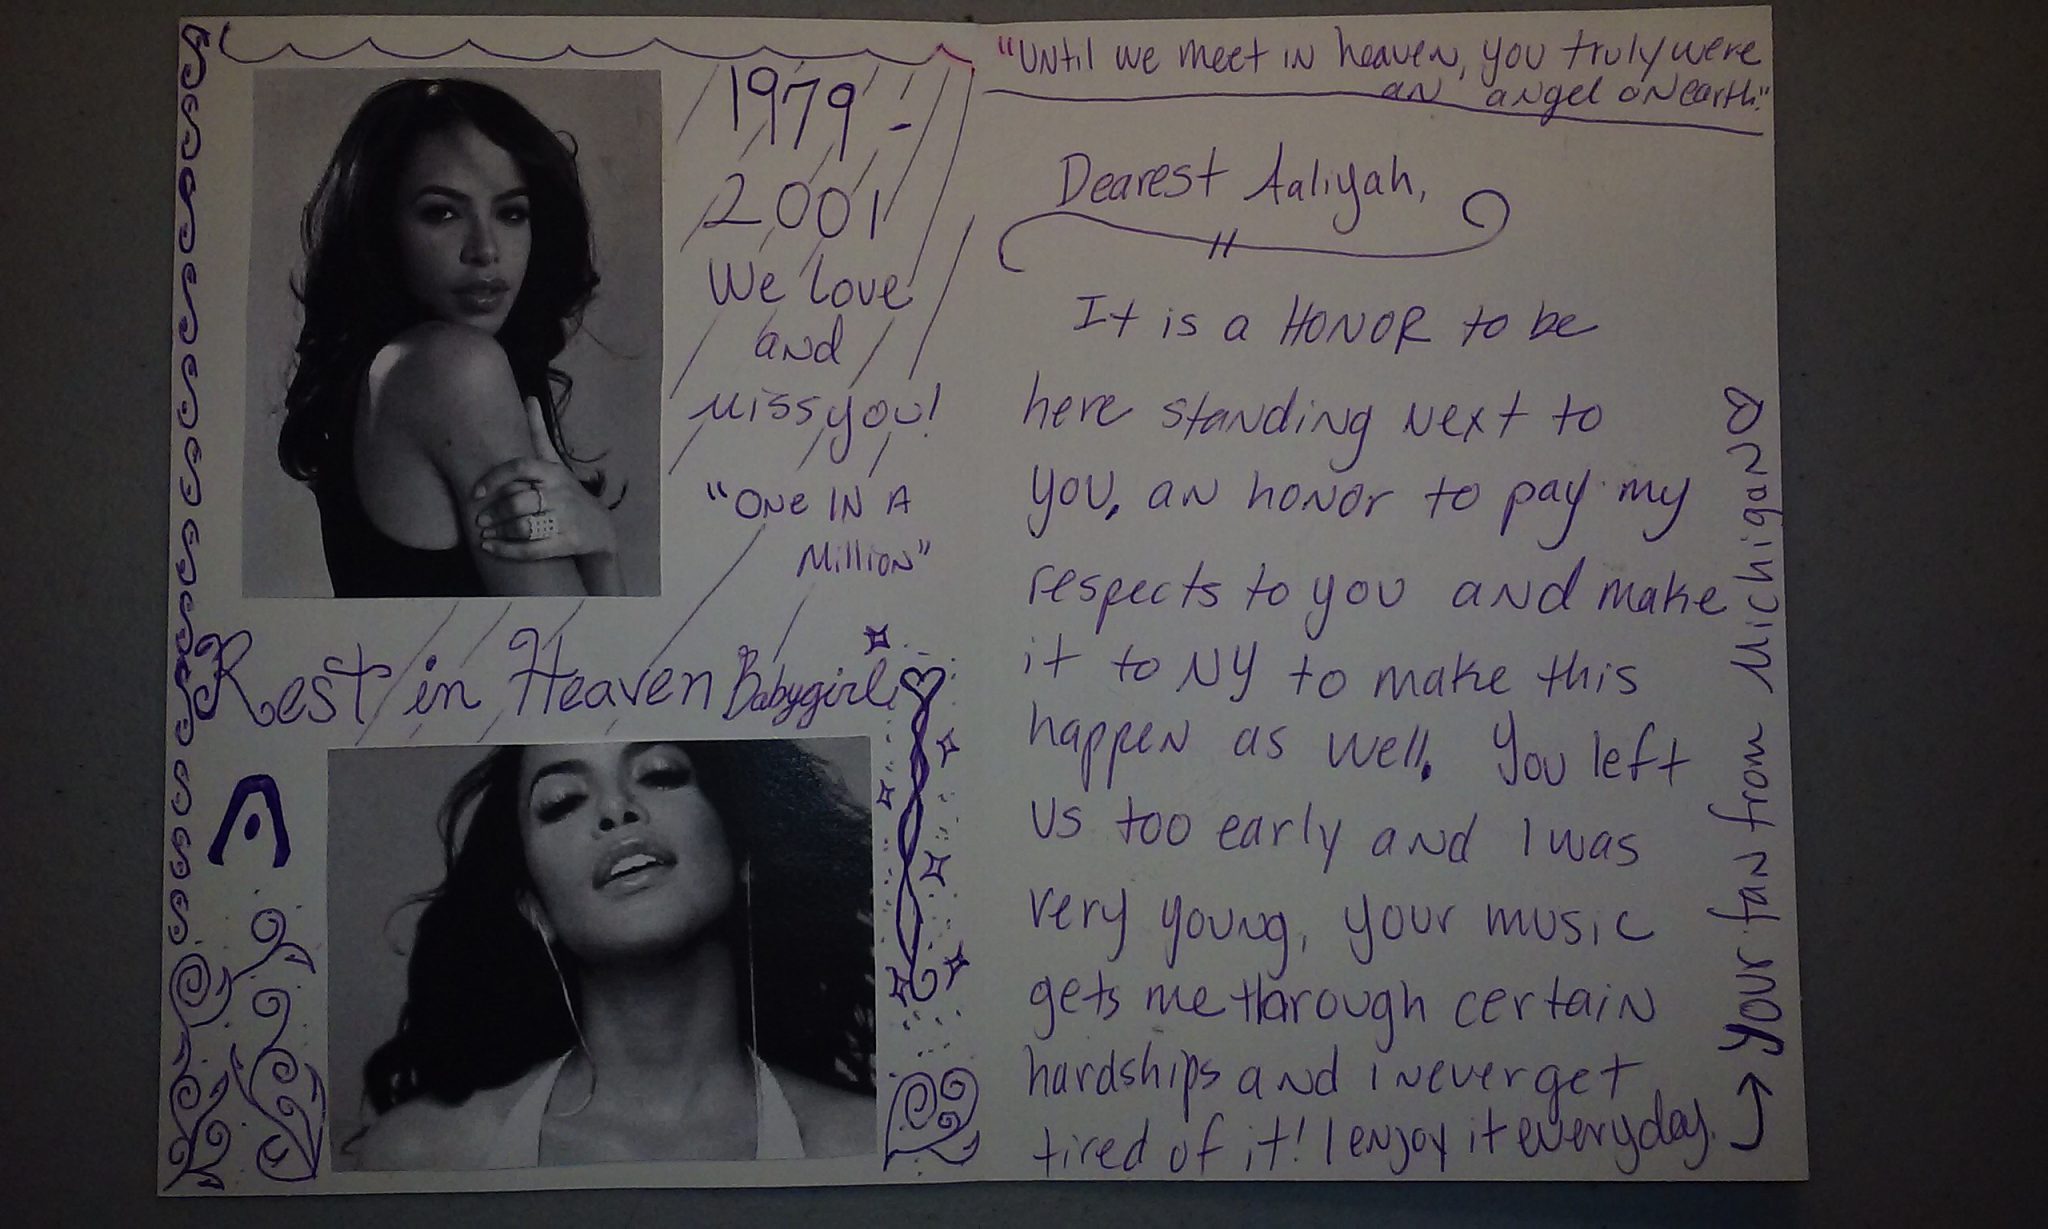 1979 -
2001
We Love
and
Miss you!
"ONE IN A
Million"
Rest in Heaven Babygirl
A
"Until we meet in heaven, you truly were
an angel on earth."
Dearest Aaliyah,
It is a HONOR to be
here standing next to
you, an honor to pay my
respects to you and make
it to NY to make this
happen as well. You left
us too early and I was
very young, your music
gets me through certain
hardships and i never get
tired of it! I enjoy it everyday.
Your fan from Michigan